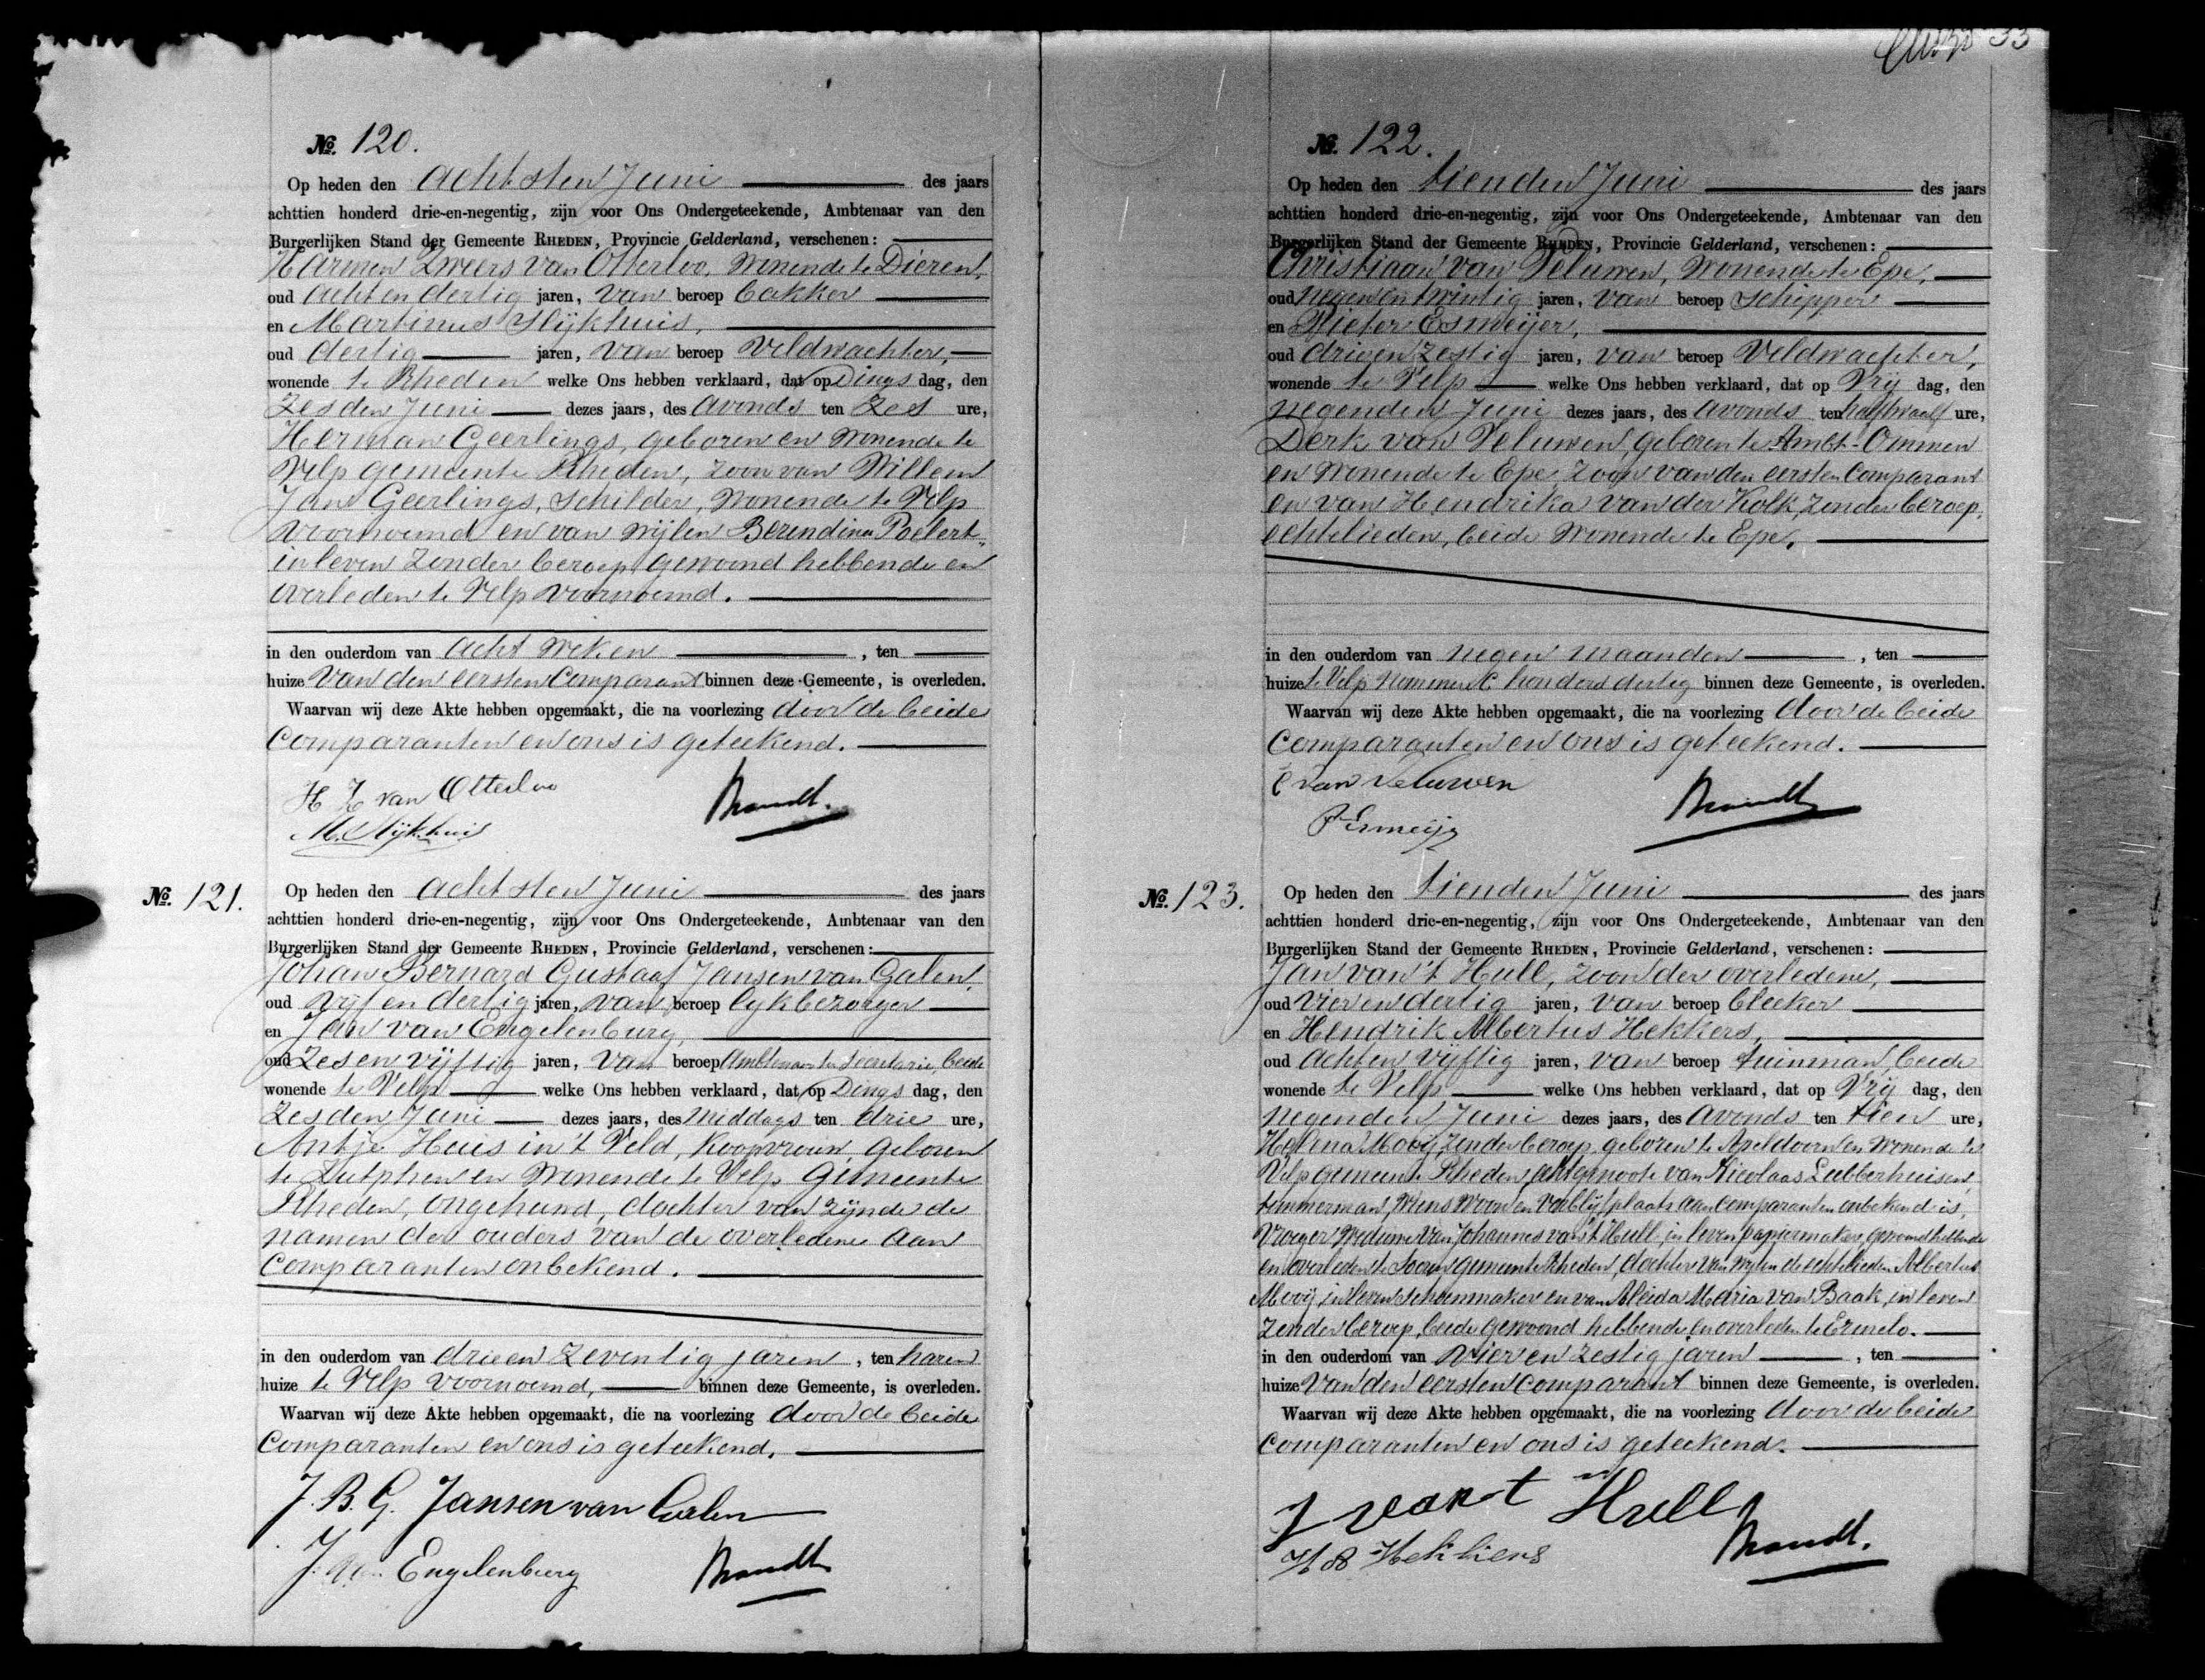 33
No. 120.
Op heden den achtsten Juni des jaars
achttien honderd drie-en-negentig, zijn voor Ons Ondergeteekende, Ambtenaar van den
Burgerlijken Stand der Gemeente RHEDEN, Provincie Gelderland, verschenen:
Harmen Zweers van Otterloo, wonende te Dieren,
oud acht en dertig jaren, van beroep bakker
en Martinus Slijkhuis,
oud dertig jaren, van beroep veldwachter,
wonende te Rheden welke Ons hebben verklaard, dat op Dings dag, den
zesden Juni dezes jaars, des avonds ten zes ure,
Herman Geerlings, geboren en wonende te
Velp gemeente Rheden, zoon van Willem
Jan Geerlings, schilder, wonende te Velp
voornoemd en van wijlen Berendina Poelert,
in leven zonder beroep gewoond hebbende en
overleden te Velp voornoemd.
in den ouderdom van acht weken, ten
huize van den eersten comparant binnen deze Gemeente, is overleden.
Waarvan wij deze Akte hebben opgemaakt, die na voorlezing door de beide
comparanten en ons is geteekend.
H Z van Otterloo
Brandt.
M. Slijkhuis
No. 121.
Op heden den achtsten Juni des jaars
achttien honderd drie-en-negentig, zijn voor Ons Ondergeteekende, Ambtenaar van den
Burgerlijken Stand der Gemeente RHEDEN, Provincie Gelderland, verschenen:
Johan Bernard Gustaaf Jansen van Galen,
oud vijf en dertig jaren, van beroep lijkbezorger
en Jan van Engelenburg,
oud zes en vijftig jaren, van beroep ambtenaar ter secretarie, beide
wonende te Velp welke Ons hebben verklaard, dat op Dings dag, den
zesden Juni dezes jaars, des middags ten drie ure,
Antje Huis in 't Veld, koopvrouw, geboren
te Zutphen en wonende te Velp gemeente
Rheden, ongehuwd, dochter van zijnde de
namen der ouders van de overledene aan
comparanten onbekend.
in den ouderdom van drie en zeventig jaren, ten haren
huize te Velp voornoemd, binnen deze Gemeente, is overleden.
Waarvan wij deze Akte hebben opgemaakt, die na voorlezing door de beide
comparanten en ons is geteekend.
J. B. G. Jansen van Galen
J. van Engelenburg
Brandt
No. 122.
Op heden den tienden Juni des jaars
achttien honderd drie-en-negentig, zijn voor Ons Ondergeteekende, Ambtenaar van den
Burgerlijken Stand der Gemeente RHEDEN, Provincie Gelderland, verschenen:
Christiaan van Veluwen, wonende te Epe,
oud negen en twintig jaren, van beroep schipper
en Pieter Esmeijer,
oud drie en zestig jaren, van beroep veldwachter,
wonende te Velp welke Ons hebben verklaard, dat op Vrij dag, den
negenden Juni dezes jaars, des avonds ten half twaalf ure,
Derk van Veluwen, geboren te Ambt-Ommen
en wonende te Epe, zoon van den eersten comparant
en van Hendrika van der Kolk, zonder beroep,
echtelieden, beide wonende te Epe.
in den ouderdom van negen maanden, ten
huize te Velp nommer C honderd dertig binnen deze Gemeente, is overleden.
Waarvan wij deze Akte hebben opgemaakt, die na voorlezing door de beide
comparanten en ons is geteekend.
C van Veluwen
Brandt
P Esmeijer
No. 123.
Op heden den tienden Juni des jaars
achttien honderd drie-en-negentig, zijn voor Ons Ondergeteekende, Ambtenaar van den
Burgerlijken Stand der Gemeente RHEDEN, Provincie Gelderland, verschenen:
Jan van 't Hull, zoon der overledene,
oud vier en dertig jaren, van beroep bleeker
en Hendrik Albertus Hekkers,
oud acht en vijftig jaren, van beroep tuinman, beide
wonende te Velp welke Ons hebben verklaard, dat op Vrij dag, den
negenden Juni dezes jaars, des avonds ten tien ure,
Helena Mooij, zonder beroep, geboren te Apeldoorn en wonende te
Velp gemeente Rheden, echtgenoote van Nicolaas Lubberhuisen,
timmerman, wiens woon en verblijfplaats aan comparanten onbekend is,
vroeger weduwe van Johannes van 't Hull, in leven papiermaker, gewoond hebbende
en overleden te Soeren gemeente Rheden, dochter van wijlen de echtelieden Albertus
Mooij, in leven schoenmaker en van Aleida Maria van Baak, in leven
zonder beroep, beide gewoond hebbende en overleden te Ermelo.
in den ouderdom van vier en zestig jaren, ten
huize van den eersten comparant binnen deze Gemeente, is overleden.
Waarvan wij deze Akte hebben opgemaakt, die na voorlezing door de beide
comparanten en ons is geteekend.
J van t Hull
Brandt.
H A Hekkers